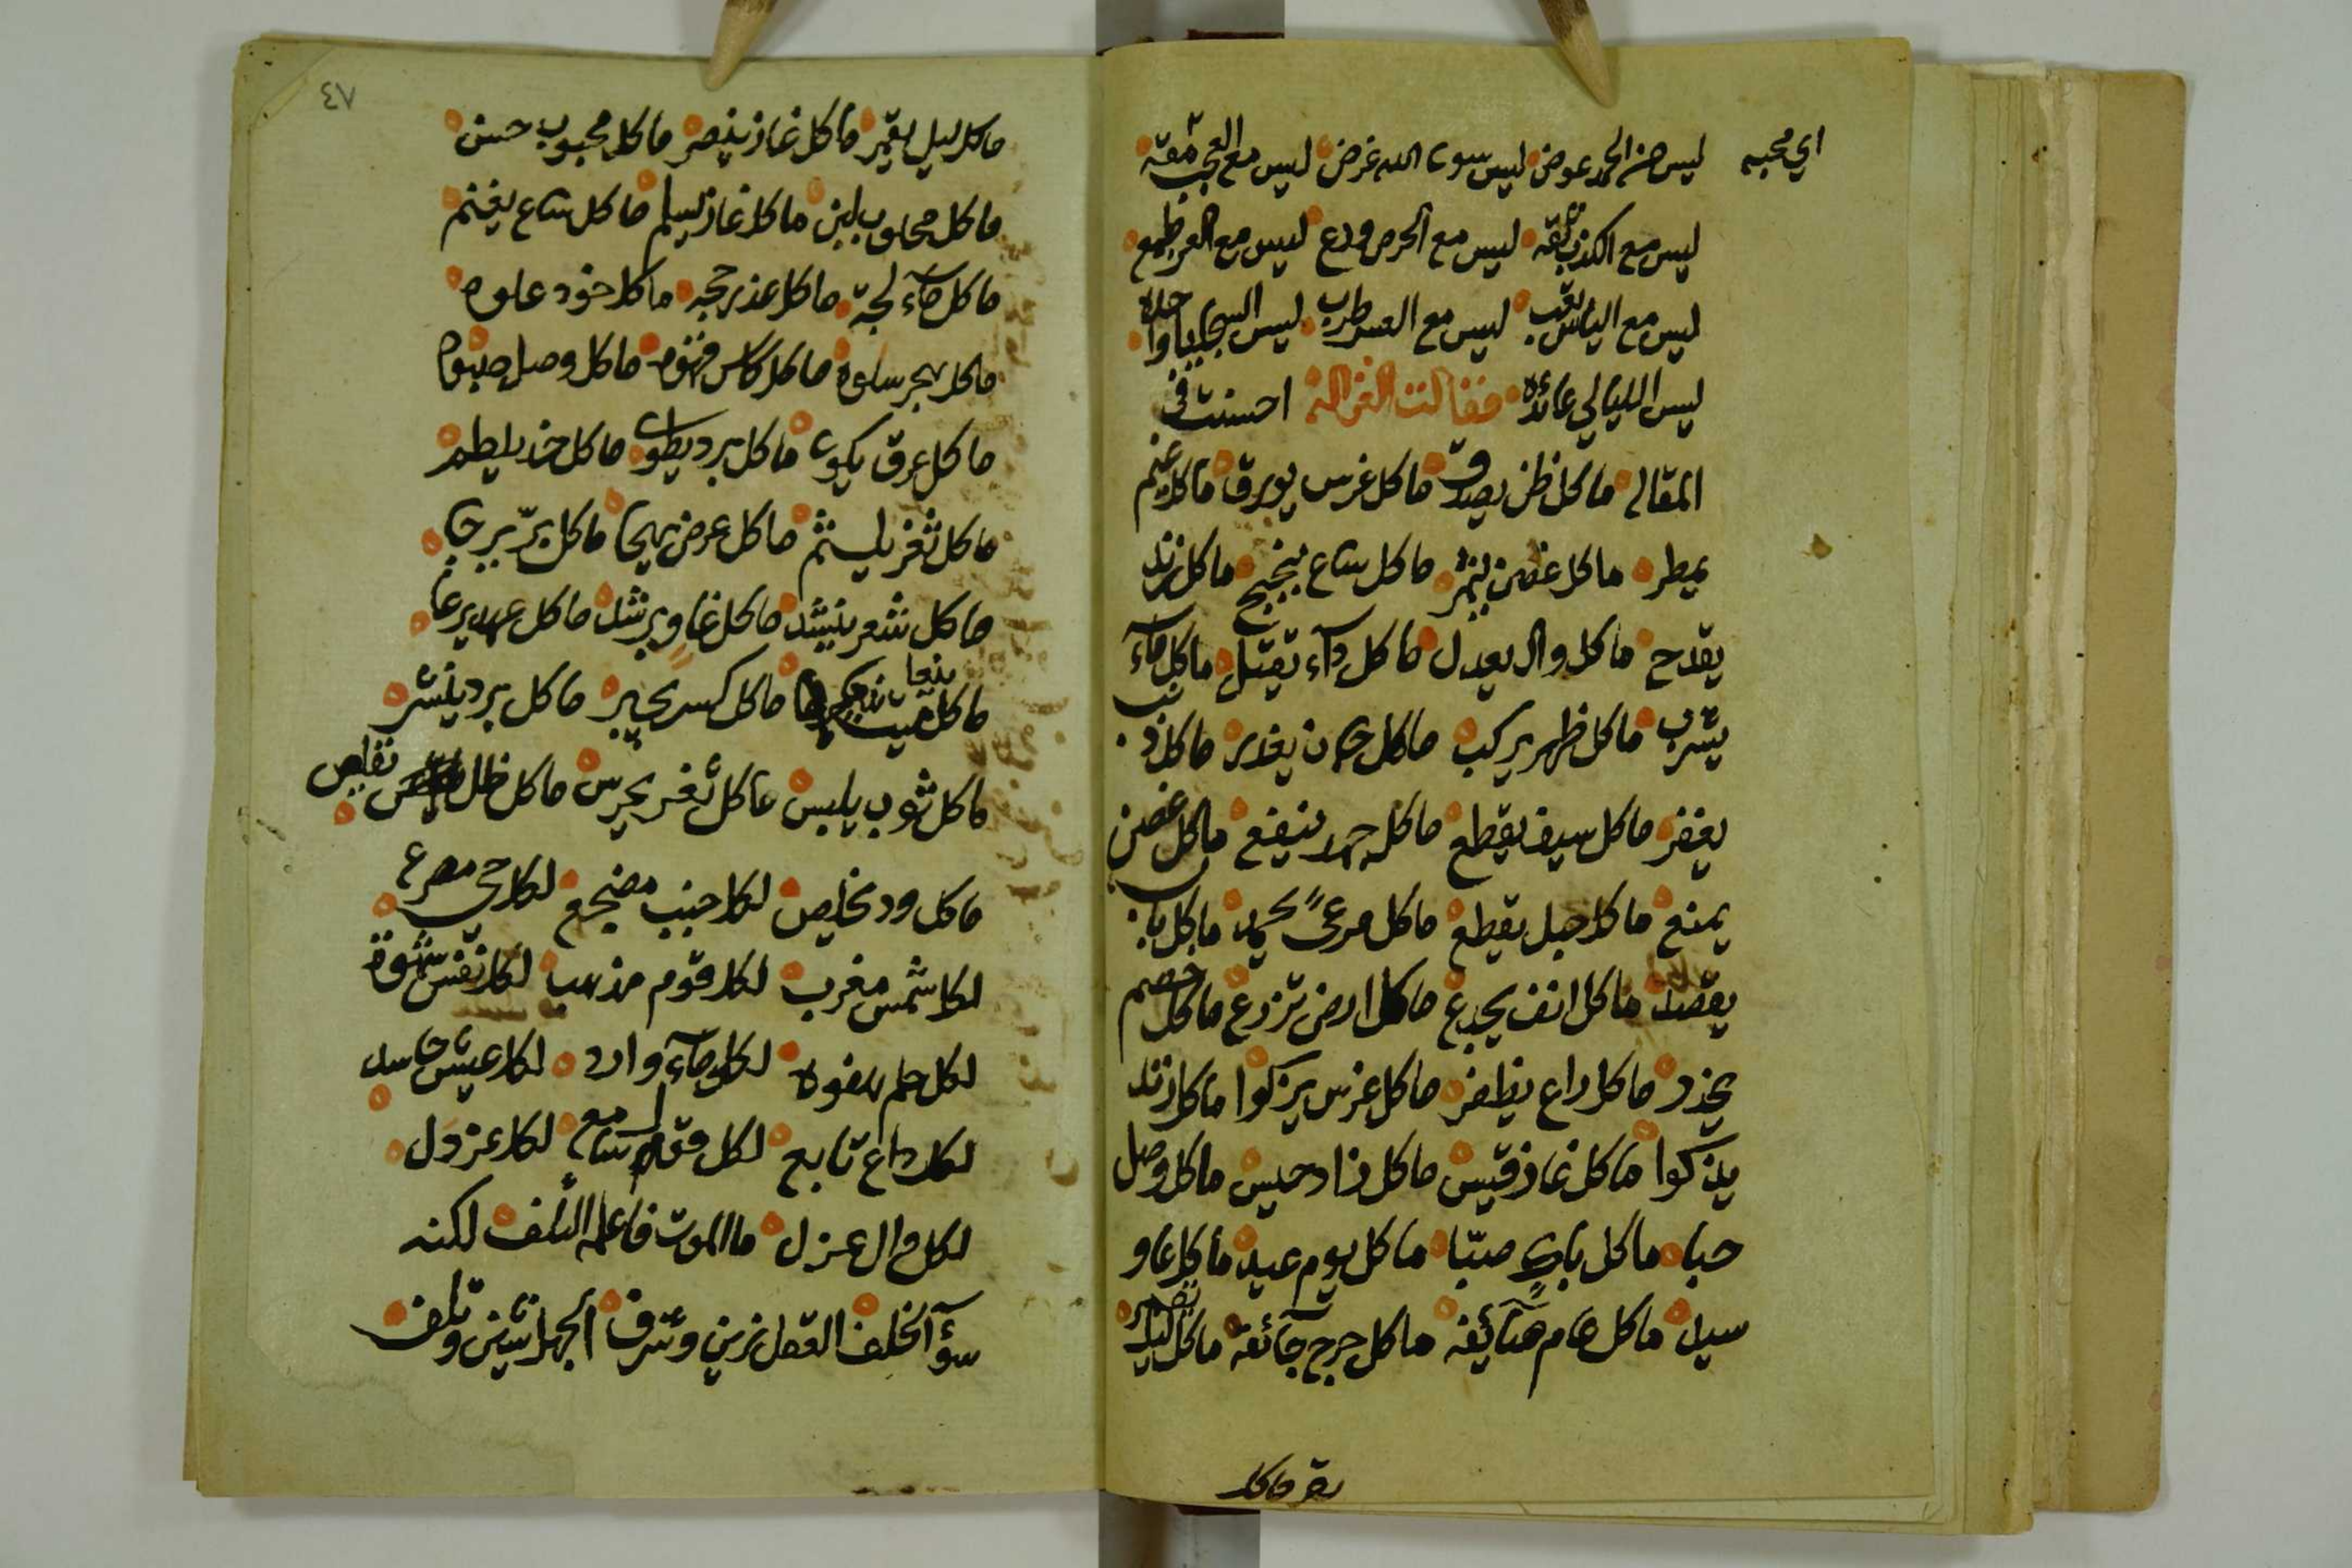 ليس من الحمد عوض ليس سوى الله غرض ليس مع العجب مقة
اي محبه
ليس مع الكذب ثقه ليس مع الحرص ورع ليس مع العز طمع
ليس مع الياس تعب ليس مع العسر طرب ليس السجايا واحده
ليس الليالي عائده فقالت الغزاله احسنت في
المقال ما كل ظن يصدق ما كل غرس يورق ما كل غيم
يمطر ما كل غصن يثمر ما كل ساع ينجح ما كل زند
يقدح ما كل وال يعدل ما كل داء يقتل ما كل ماء
يشرب ما كل ظهر يركب ما كل يغدر ما كل ذنب
يغفر ما كل سيف يقطع ما كل جهد ينفع ما كل غصن
يمنع ما كل حبل يقطع ما كل مرعىً يحمد ما كل باب
يقصد ما كل انف يجدع ما كل ارض تزرع ما كل خصم
يحذر ما كل داع يظفر ما كل غرس يزكوا ما كل زند
يذكوا ما كل غاز قيس ما كل زاد حيس ما كل وصل
حبا ما كل باري صبّا ما كل يوم عيد ما كل غاو
سيد ما كل عام صائفه ما كل جرح جائفة ما كل ليل يقصر
يقر ما كل
٤٧
ما كل ليل يقمر ما كل غاز ينصر ما كل محبوب حسن
ما كل محلوب لبن ما كل غاز يسلم ما كل ساع يغنم
ما كل ماء لجة ما كل عذر حجه ما كل خود علوه
ما كل بحر ساوه ما كل كاس قهوه ما كل وصل صبوه
ما كل عرق يكوى ما كل برد يطوى ما كل خد يلطم
ما كل ثغر يلثم ما كل عرض يهجا ما كل برّ يرجا
ما كل شعر ينشد ما كل غاو يرشد ما كل عهد يرعا
ما كل ميت ينعا ما كل كسر يجبر ما كل برد ينشر
ما كل ثوب يلبس ما كل ثغر يحرس ما كل ظل يقلص
ما كل ود يخلص لكل جنب مضجع لكل حي مصرع
لكل شمس مغرب لكل قوم مذهب لكل نفس شهوة
لكل حلم هفوه لكل ماء وارد لكل عيش حاسد
لكل داع تابع لكل سامع لكل عز ذل
لكل وال عزل ما الموت فاعله التلف لكنه
سوء الخلف العقل زين وشرف الجهل شين وتلف